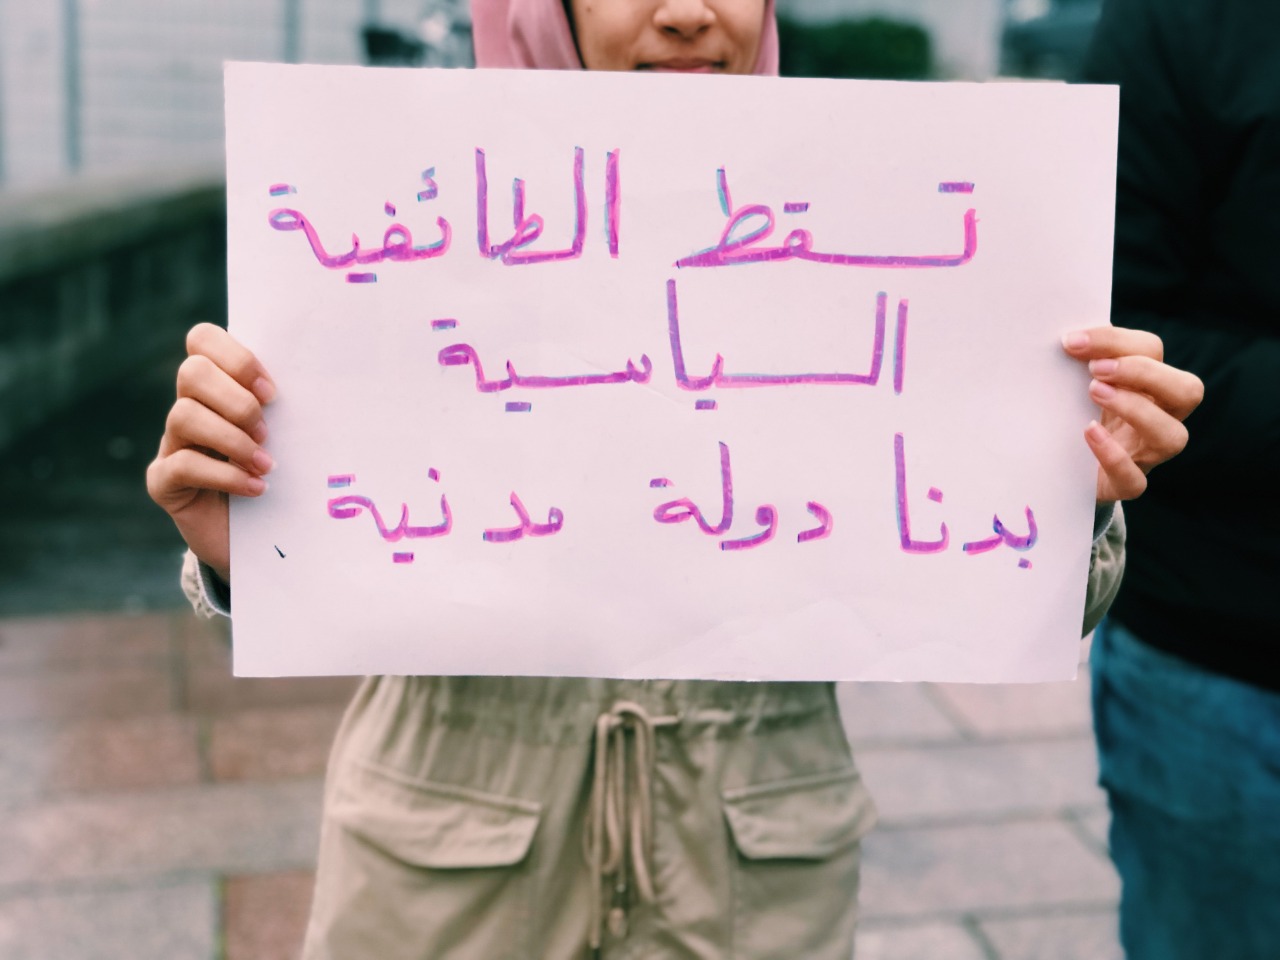 تسقط الطائفية
السياسية
بدنا دولة مدنية